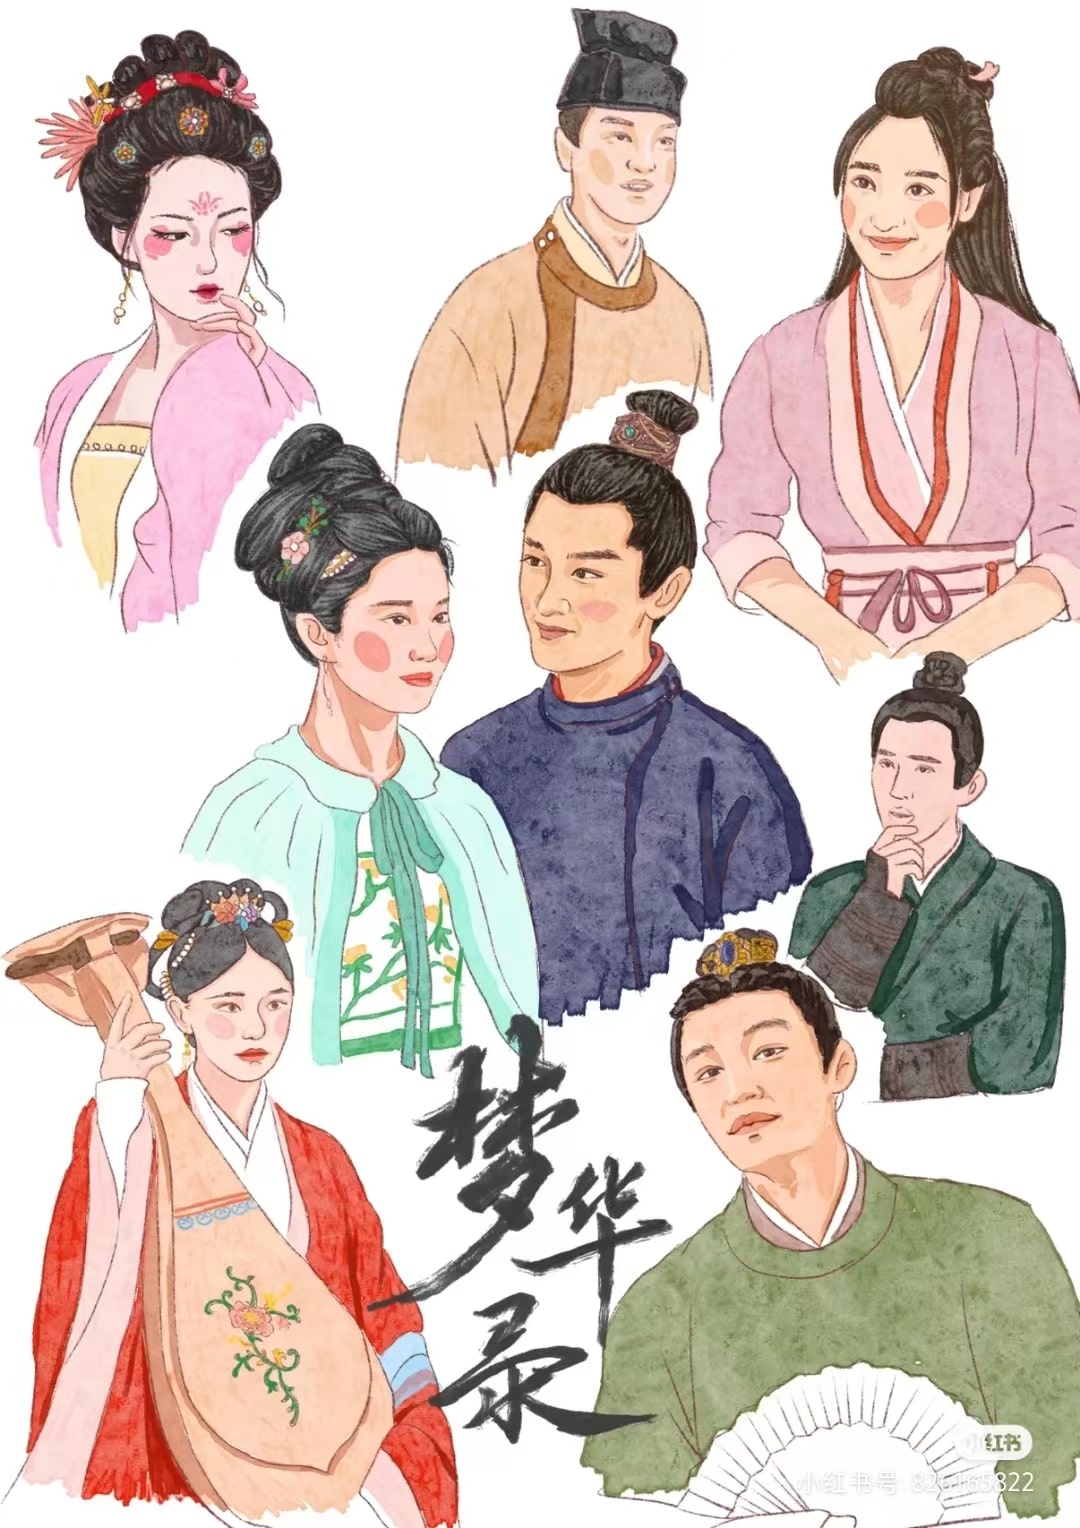 梦华
录
小红书
小红书号: 826165822